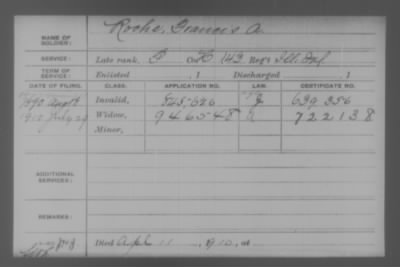 NAME OF SOLDIER: Roche, Francis A.
SERVICE: Late rank, P Co. 142 Reg't Ill. Inf
TERM OF SERVICE: Enlisted , 1 Discharged , 1
DATE OF FILING. CLASS. APPLICATION NO. LAW. CERTIFICATE NO.
1890 Aug Invalid, 825,626 J 639 356
1910 July 29 Widow, 946548 722138
Minor,
ADDITIONAL SERVICES:
REMARKS:
Died Apl 11, 1910, at